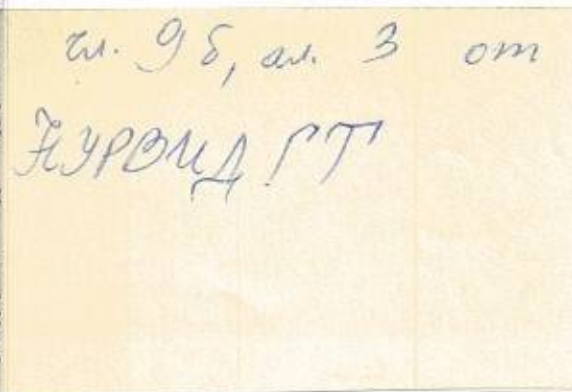 чл. 9б, ал. 3 от
НУРВИДГТ